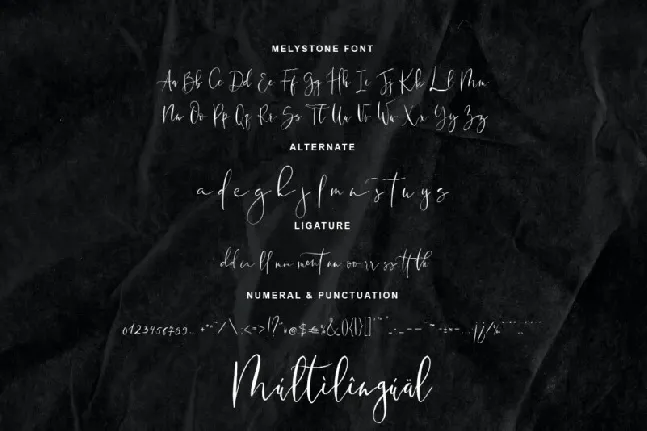 MELYSTONE FONT
Aa Bb Cc Dd Ee Ff Gg Hh Ii Jj Kk Ll Mm
Nn Oo Pp Qq Rr Ss Tt Uu Vv Ww Xx Yy Zz
ALTERNATE
a d e g h j l m n s t u y s
LIGATURE
dd ll
NUMERAL & PUNCTUATION
0123456789
Múltilîngúäl